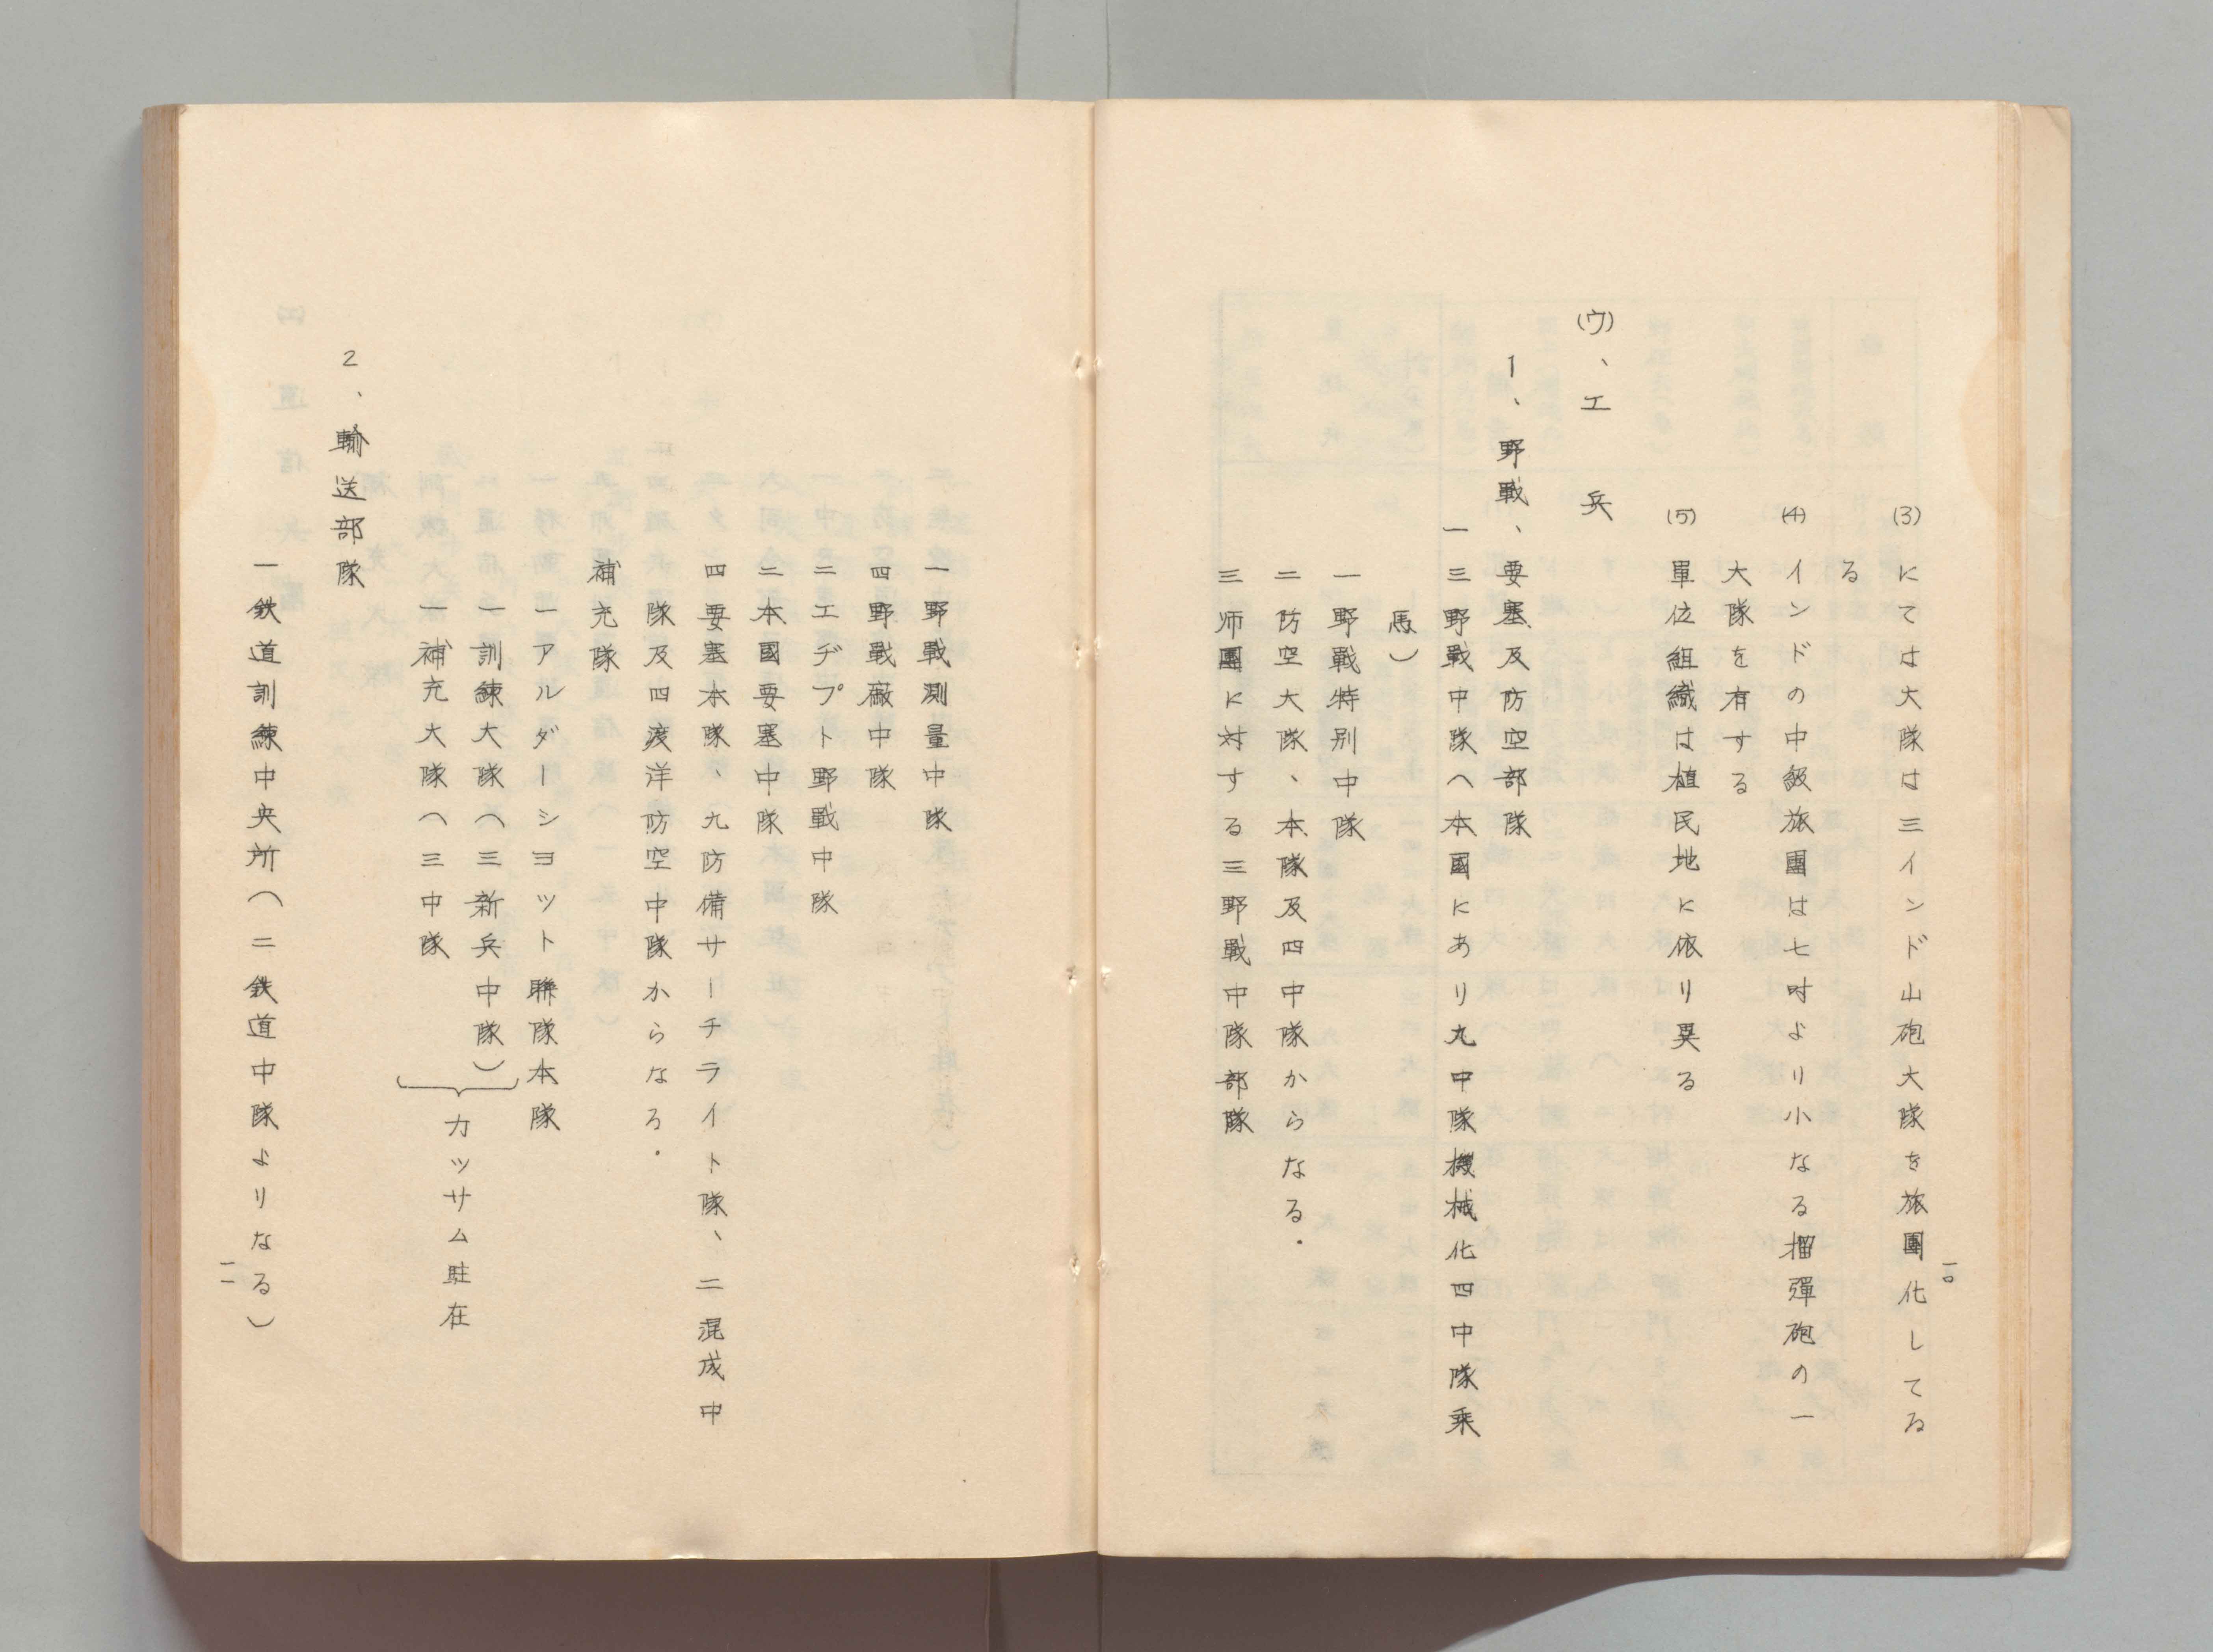 (3) にては大隊は三インド山砲大隊を旅團化してゐ
る
(4) インドの中級旅團は七吋より小なる榴彈砲の一
大隊を有する
(5) 單位組織は植民地に依り異る
(ウ)、工 兵
1、野戰、要塞及防空部隊
一三野戰中隊(本國にあり九中隊機械化四中隊乘
馬)
一野戰特別中隊
二防空大隊、本隊及四中隊からなる.
三师團に対する三野戰中隊部隊
一〇
一野戰測量中隊
四野戰廠中隊
二エヂプト野戰中隊
二本國要塞中隊
四要塞本隊、九防備サーチライト隊、二混成中
隊及四渡洋防空中隊からなる.
補充隊
一アルダーシヨット聯隊本隊
一訓練大隊(三新兵中隊)
一補充大隊(三中隊
カッサム駐在
2、輸送部隊
一鉄道訓練中央所(二鉄道中隊よりなる)
一一